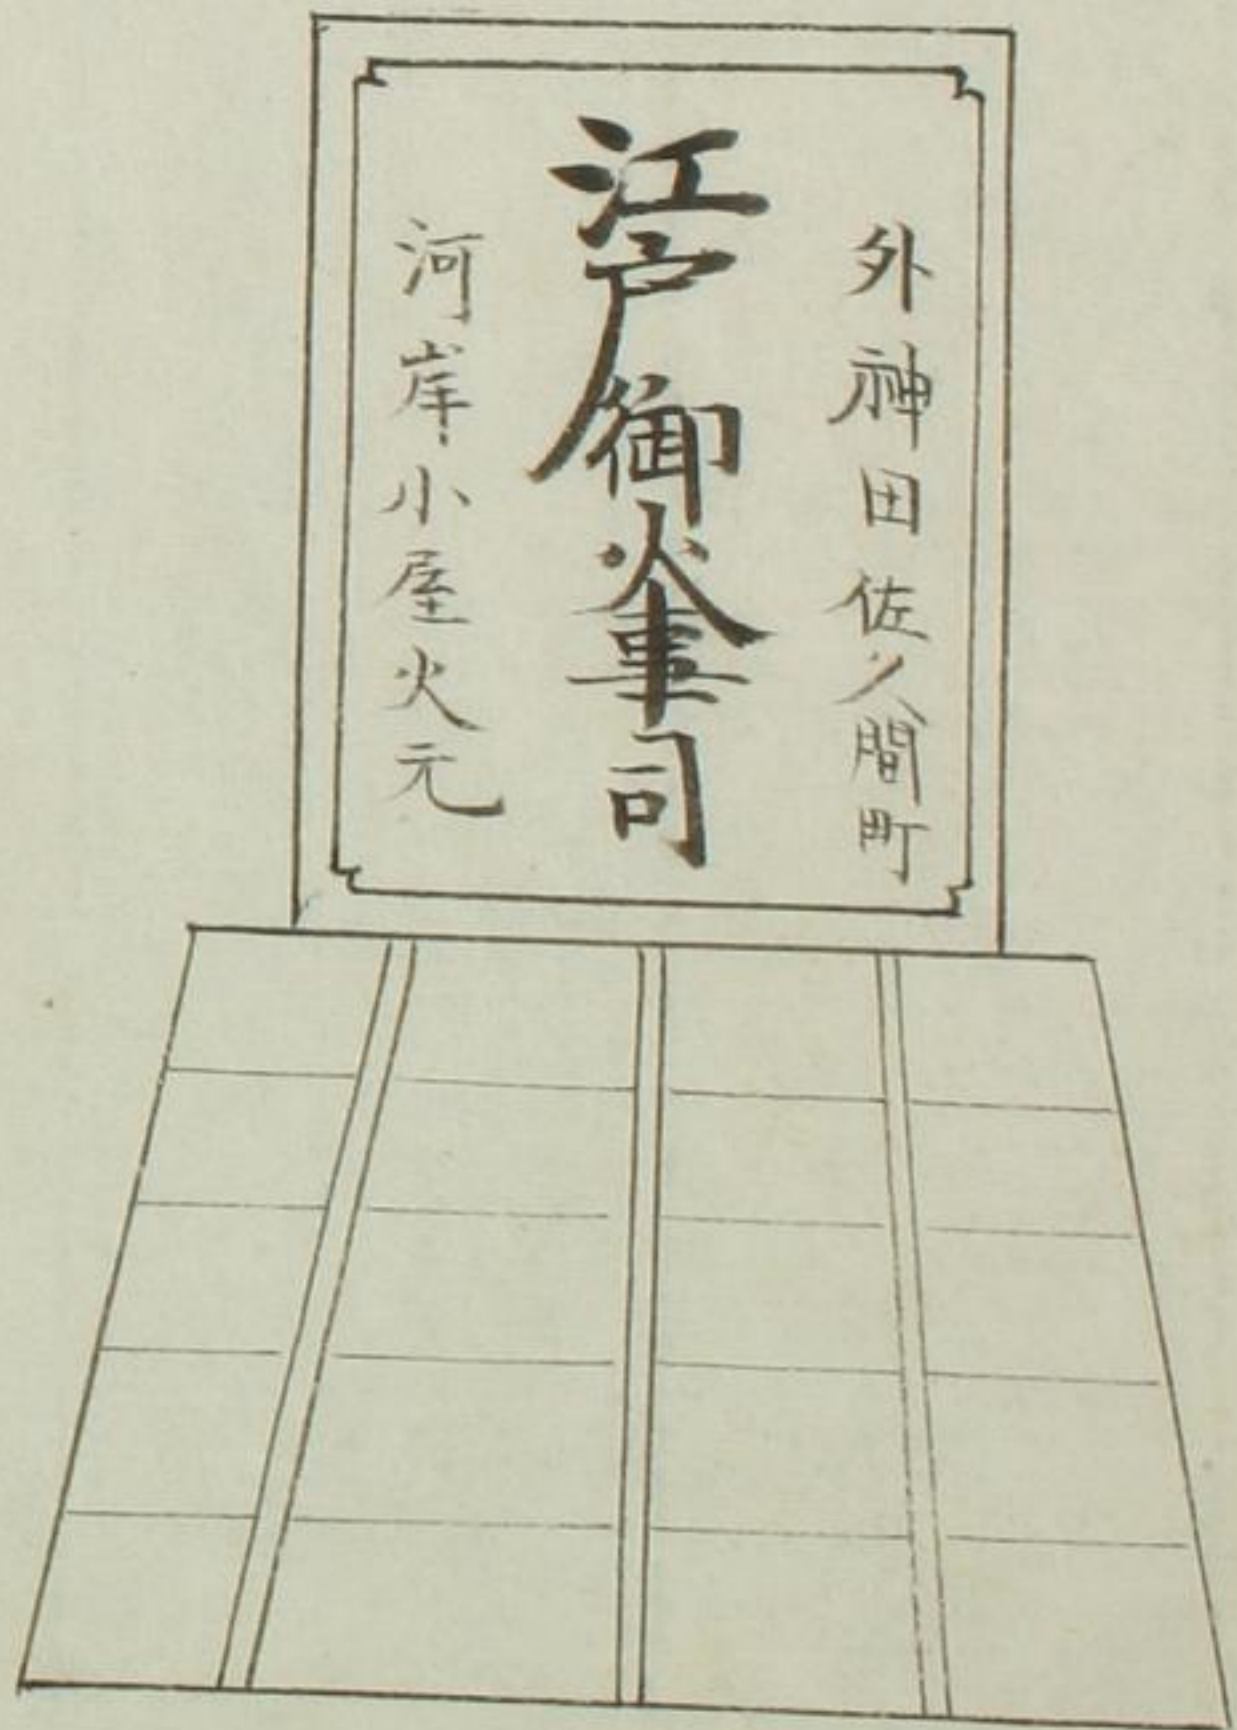 外神田佐久間町
江戸御火事司
河岸小屋火元